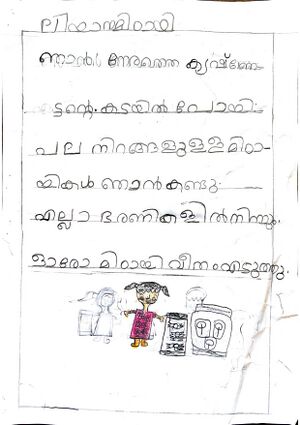 ലിയാന്മിഠായി
ഞാൻ ന്നേരത്തെ കൃഷ്ണേ-
ട്ടന്റെ കടയിൽ പോയി.
പല നിറങ്ങളുള്ള മിഠാ-
യികൾ ഞാൻ കണ്ടു
എല്ലാ ഭരണികളിൽനിന്നും
ഓരോ മിഠായി വീതംഎടുത്തു.